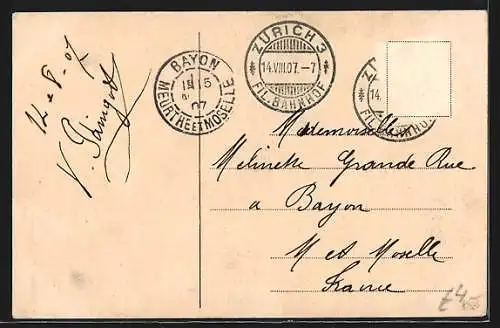 14-8-07
BAYON
15
07
MEURTHE ET MOSELLE
ZÜRICH 3
14.VIII.07.-7
FIL. BAHNHOF
Z
14.
FIL. BAHNHOF
Mademoiselle
Melinette Grande Rue
a Bayon
M et Moselle
France